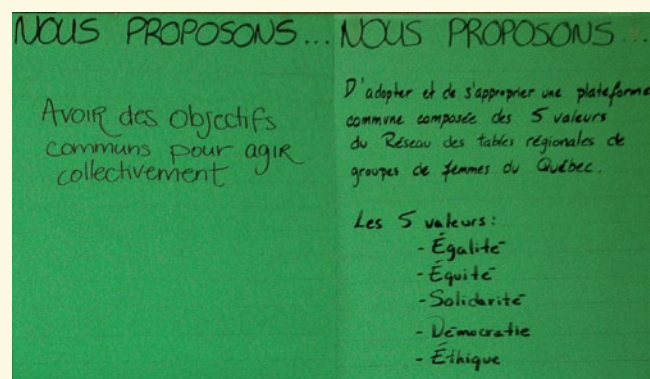 NOUS PROPOSONS...
Avoir des objectifs
communs pour agir
collectivement
NOUS PROPOSONS...
D'adopter et de s'approprier une plateforme
commune composée des 5 valeurs
du Réseau des tables régionales de
groupes de femmes du Québec.
Les 5 valeurs:
- Égalité
- Équité
- Solidarité
- Démocratie
- Éthique